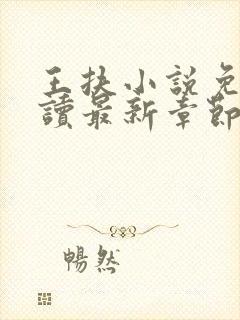 王扶小說免
讀最新章節
暢然